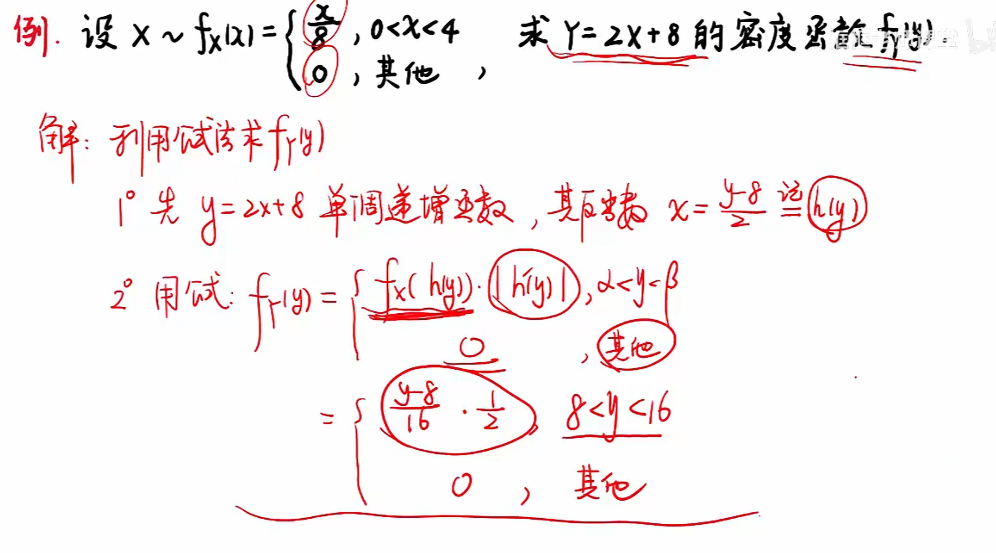 例. 设 X ~ fX(x) = { x/8 , 0<x<4 求 Y=2X+8 的密度函数 fY(y).
0 , 其他 ,
解: 利用公式法求 fY(y)
1° 先 y=2x+8 单调递增函数, 其反函数 x = (y-8)/2 记= h(y)
2° 用公式: fY(y) = { fX(h(y))·|h'(y)|, α<y<β
0 , 其他
= { (y-8)/16 · 1/2 , 8<y<16
0 , 其他